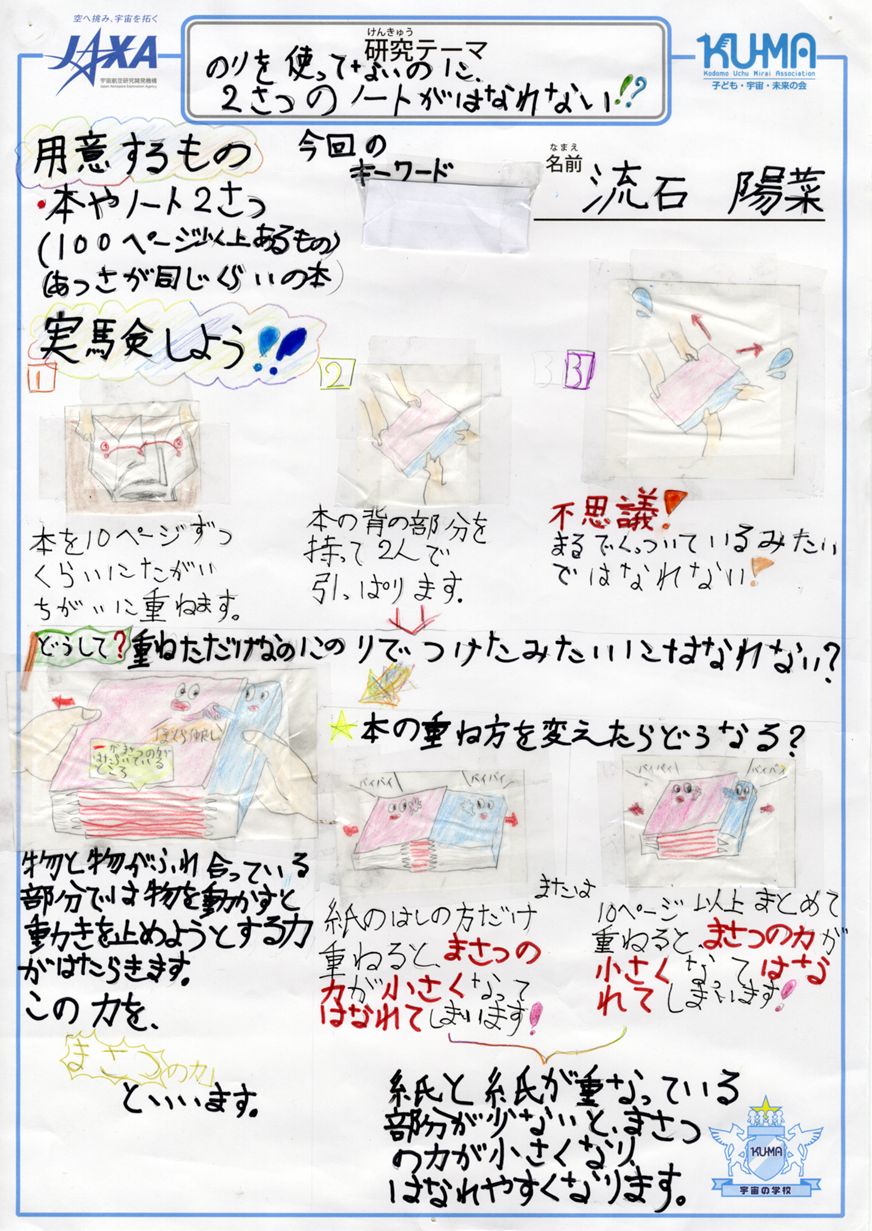 空へ挑み、宇宙を拓く
JAXA
宇宙航空研究開発機構
Japan Aerospace Exploration Agency
けんきゅう
研究テーマ
のりを使ってないのに、
2さつのノートがはなれない!?
KU-MA
Kodomo Uchu Mirai Association
子ども・宇宙・未来の会
用意するもの
・本やノート2さつ
(100ページ以上あるもの)
(あつさが同じくらいの本)
今回の
キーワード
なまえ
名前
流石 陽菜
実験しよう!!
1
本を10ページずつ
くらいにたがい
ちがいに重ねます。
2
本の背の部分を
持って2人で
引っぱります.
3
不思議!
まるでくっついているみたい
ではなれない!
どうして?重ねただけなのにのりでつけたみたいにはなれない?
ーがまさつの力が
はたらいている
ところ
物と物がふれ合っている
部分では物を動かすと
動きを止めようとする力
がはたらきます.
この力を、
まさつの力
といいます.
本の重ね方を変えたらどうなる?
バイバイ
バイバイ
紙のはしの方だけ
重ねると、まさつの
力が小さくなって
はなれてしまいます!
または
バイバイ
バイバイ
10ページ以上まとめて
重ねると、まさつの力が
小さくなってはな
れてしまいます!
紙と紙が重なっている
部分が少ないと、まさつ
の力が小さくなり、
はなれやすくなります。
KU-MA
宇宙の学校